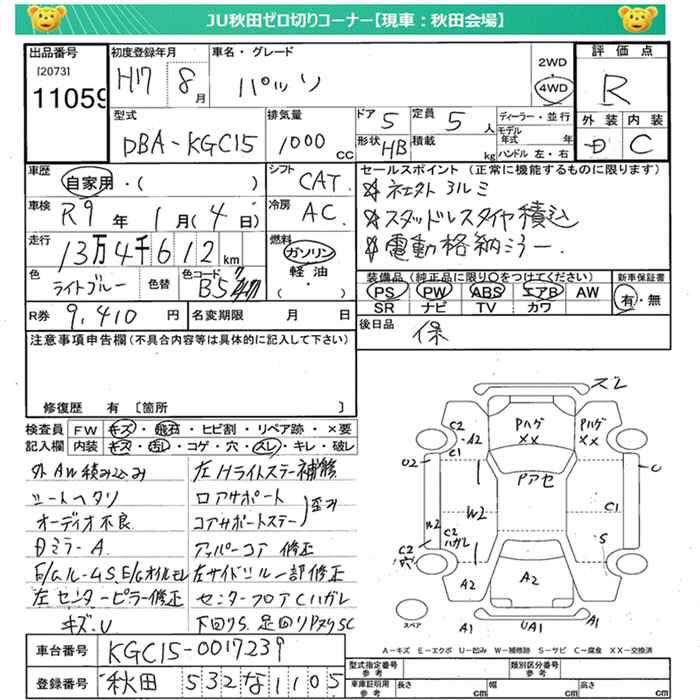 JU秋田ゼロ切りコーナー【現車：秋田会場】
出品番号
[2073]
11059
初度登録年月
H17 8月
車名・グレード
パッソ
2WD
・
4WD
評価点
R
外装 内装
D C
型式
DBA-KGC15
排気量
1000 CC
ドア 5
形状 HB
定員 5 人
積載 kg
ディーラー・並行
モデル年式 年
ハンドル 左・右
車歴
自家用・( )
シフト CAT
車検 R9年 1月(4日)
冷房 AC
走行 13万4千612km
燃料
ガソリン
軽油
・( )
色 ライトブルー 色替 色コード B54
R券 9,410 円 名変期限 月 日
セールスポイント（正常に機能するものに限ります）
☆社外アルミ
☆スタッドレスタイヤ積込
☆電動格納ミラー
装備品（純正品に限り〇をつけてください）
新車保証書
PS PW ABS エアB AW
SR ナビ TV カワ
有・無
後日品
保
注意事項申告欄（不具合内容等は具体的に記入して下さい）
修復歴 有〔箇所 〕
検査員 FW キズ・飛石・ヒビ割・リペア跡・×要
記入欄 内装 キズ・汚れ・コゲ・穴・スレ・キレ・破レ
外AW積み込み
シートヘタリ
オーディオ不良
Dミラー A
E/Gルーム S、E/Gオイルモレ
左センターピラー修正
キズ、U
左Hライトステー補修
ロアサポート
コアサポートステー 歪み
アッパーコア修正
左サイドシル一部修正
センターフロアCハガレ
下回りS. 足回りPスリSC
ズレ
C2
A2
C1
Pハゲ
XX
Pハゲ
XX
Pアセ
U2
U
W2
C1
W2
C2
ハガレ
C2
穴
S
A2
A2
A1
UA1
A1
スペア
A−キズ E−エクボ U−凹み W−補修跡 S−サビ C−腐食 XX−交換済
車台番号 KGC15-0017239
登録番号 秋田 532 な 1105
型式指定番号
参考
類別区分番号
参考
車庫証明用
参考
長さ cm
幅 cm
高さ cm